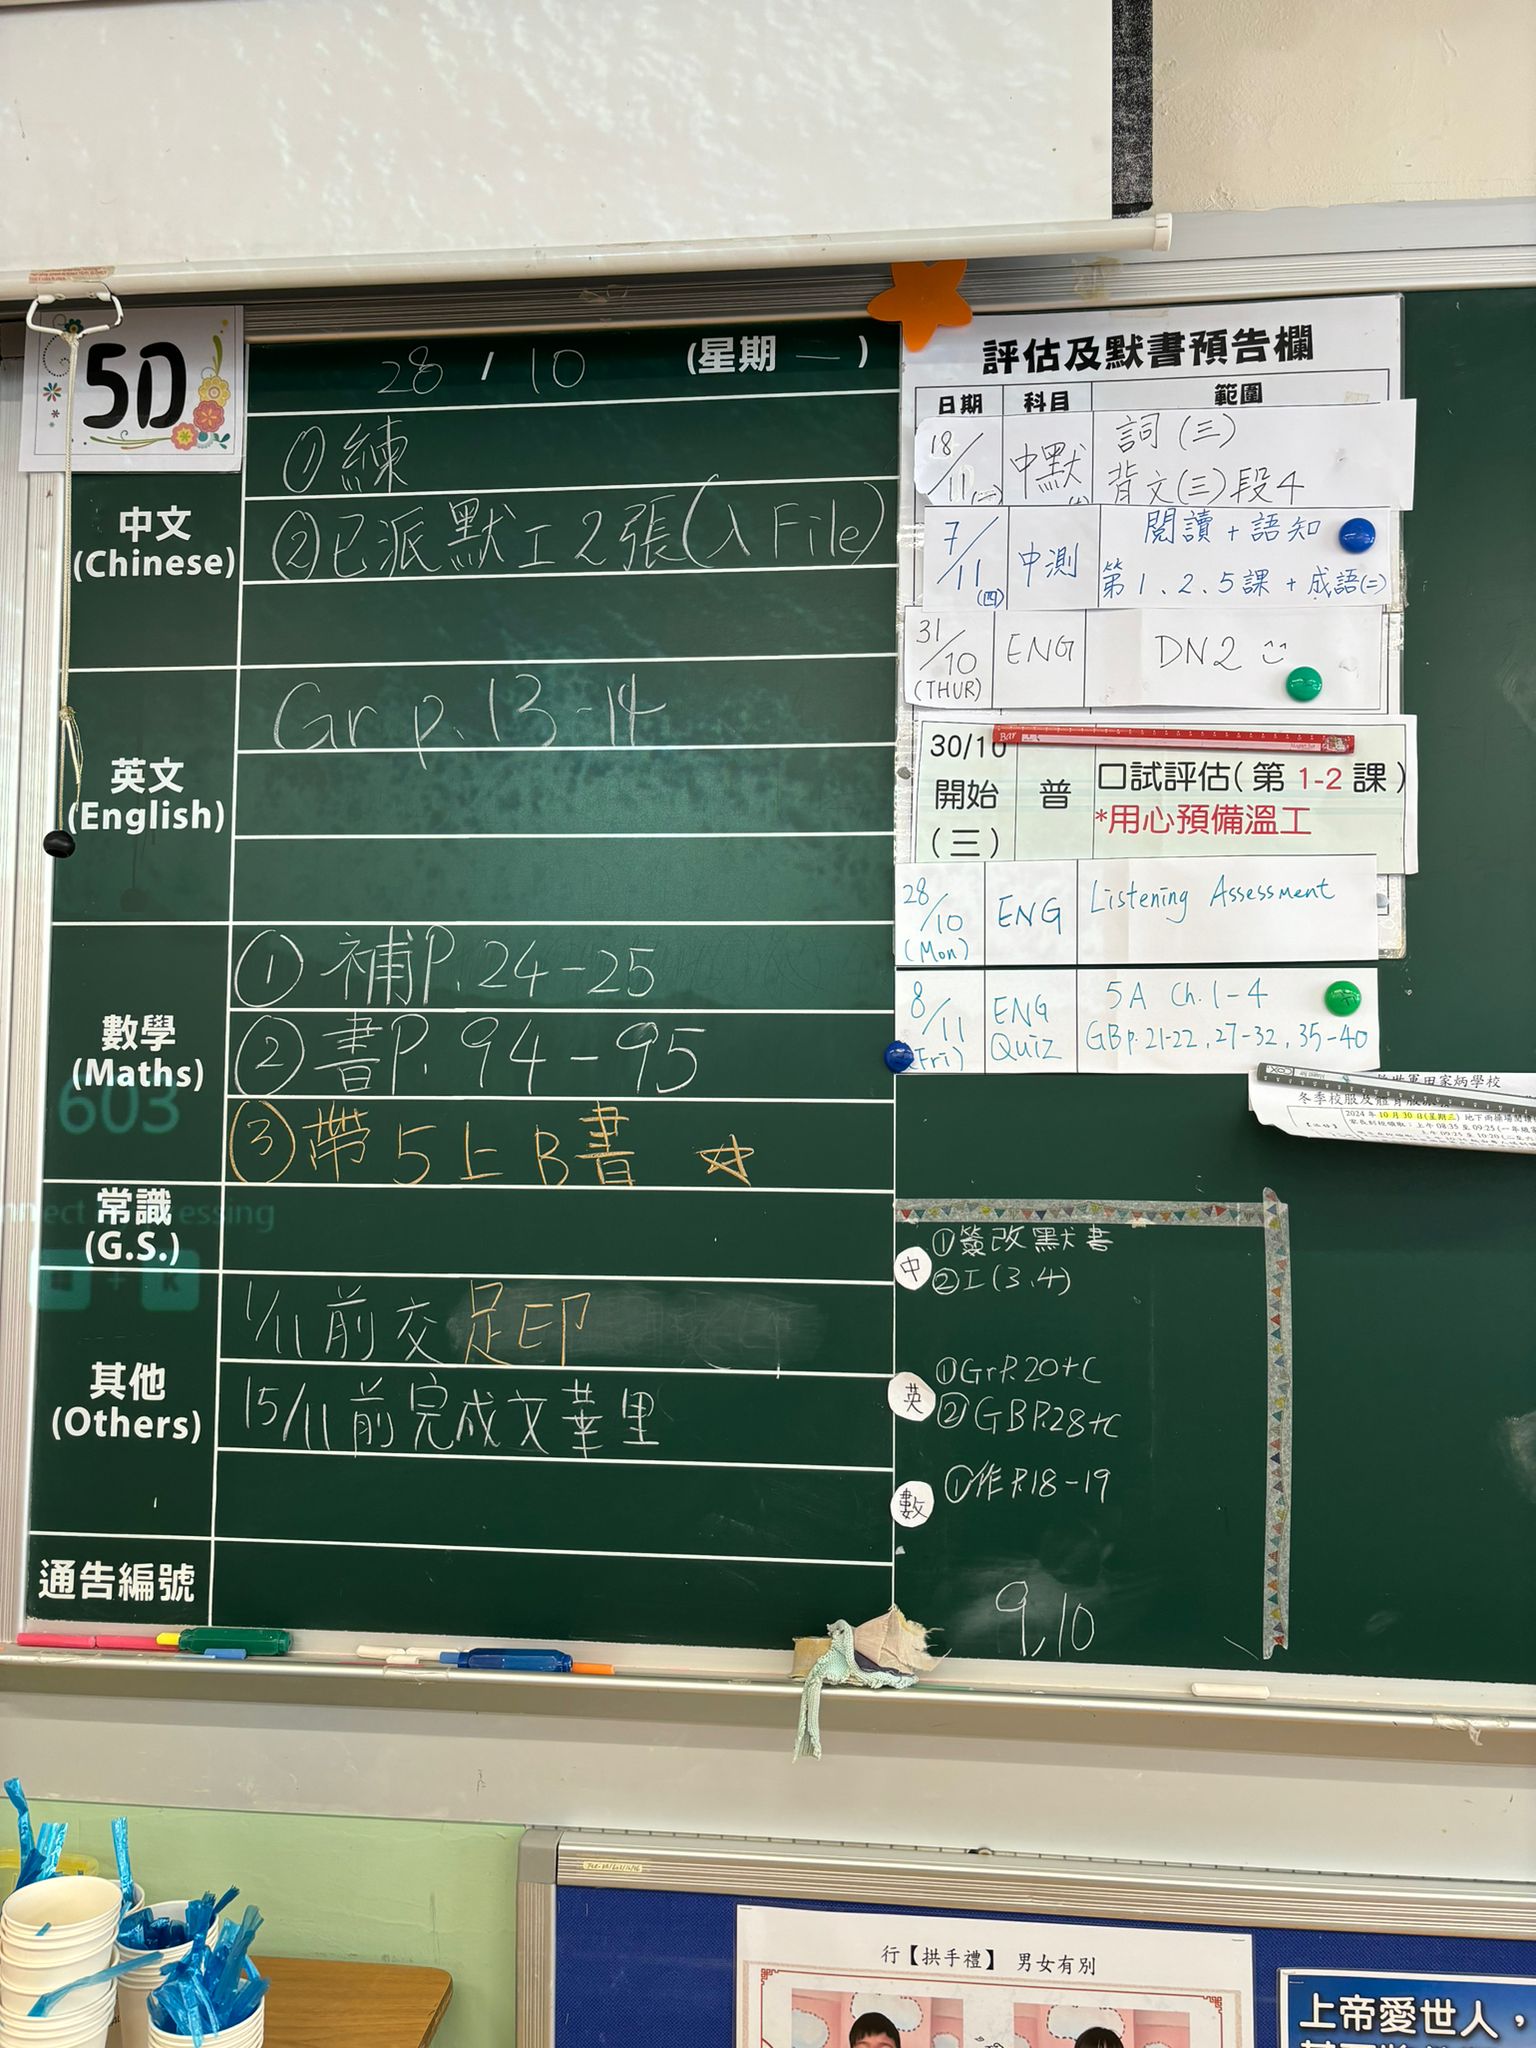 5D
28 / 10 (星期 一 )
中文
(Chinese)
① 練
② 已派默工2張(入File)
英文
(English)
Gr p. 13-14
數學
(Maths)
① 補P. 24-25
② 書P. 94-95
③ 帶5上B書 ☆
603
常識
(G.S.)
其他
(Others)
1/11 前交足印
15/11 前完成文華里
通告編號
評估及默書預告欄
日期 科目 範圍
18/11(一) 中默 詞(三)
背文(三)段4
7/11(四) 中測 閱讀+語知
第1、2、5課+成語(二)
31/10 (THUR) ENG DN2
30/10
開始
(三)
普
口試評估(第 1-2 課)
*用心預備溫工
28/10 (Mon) ENG Listening Assessment
8/11 (Fri) ENG QUIZ 5A Ch.1-4
GB p. 21-22, 27-32, 35-40
軍田家炳學校
冬季校服及體育服
2024 年 10 月 30 日(星期三)
上午 08:35 至 09:25
中
①簽改默書
②工(3.4)
英
①Gr P.20+C
②GB P.28+C
數
①作P.18-19
9, 10
行【拱手禮】 男女有別
上帝愛世人，